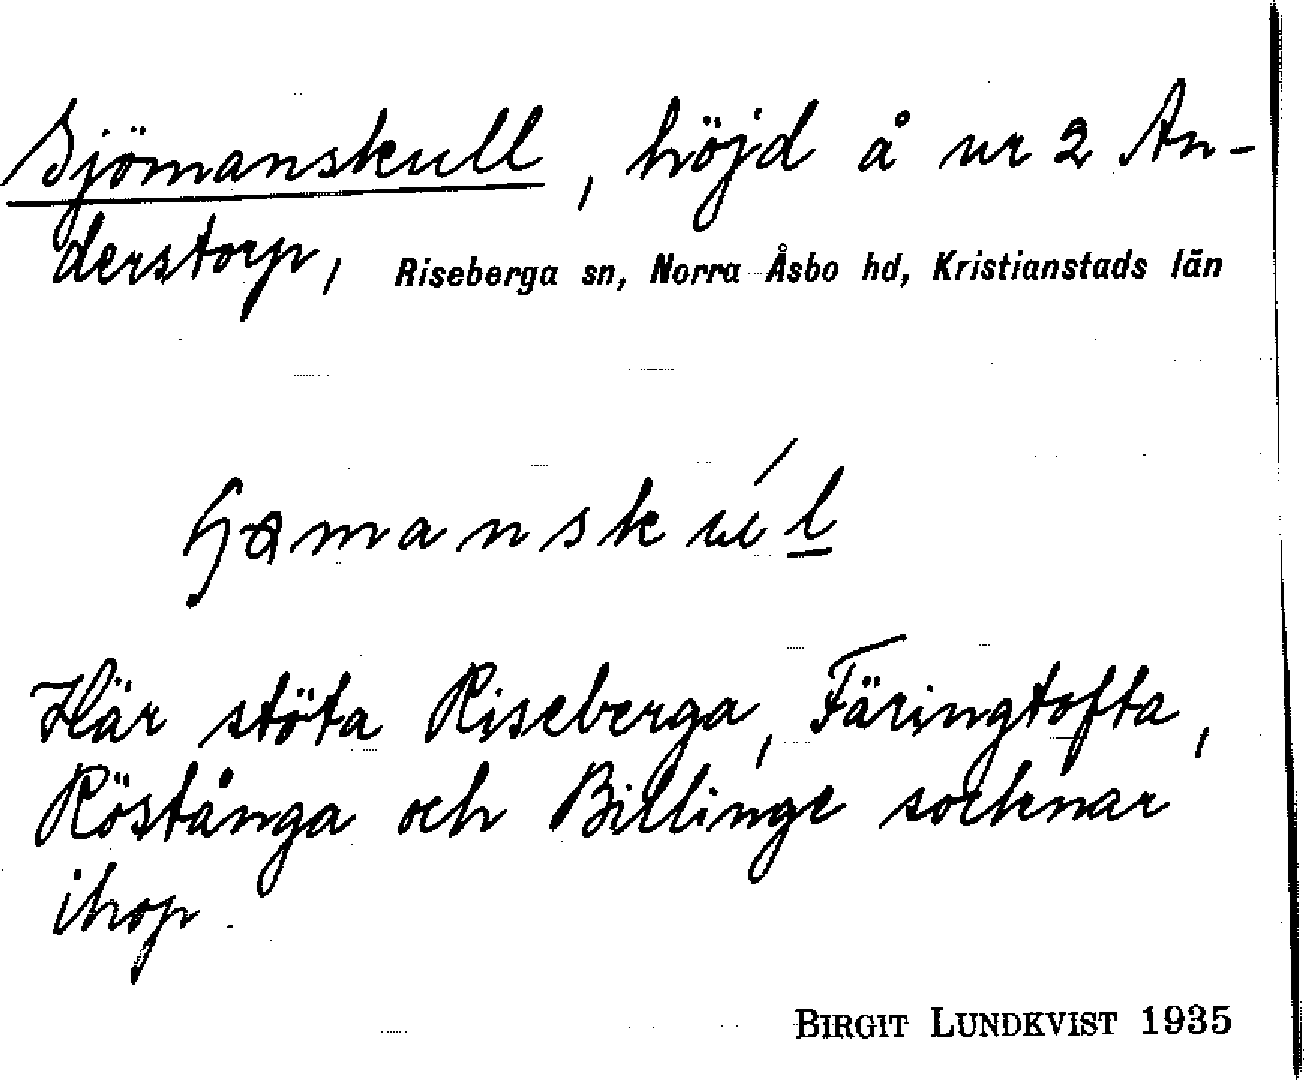 Sjömanskull, höjd å nr 2 An-
derstorp, Riseberga sn, Norra Åsbo hd, Kristianstads län
Här stöta Riseberga, Färingtofta,
Röstånga och Billinge socknar
ihop.
BIRGIT LUNDKVIST 1935